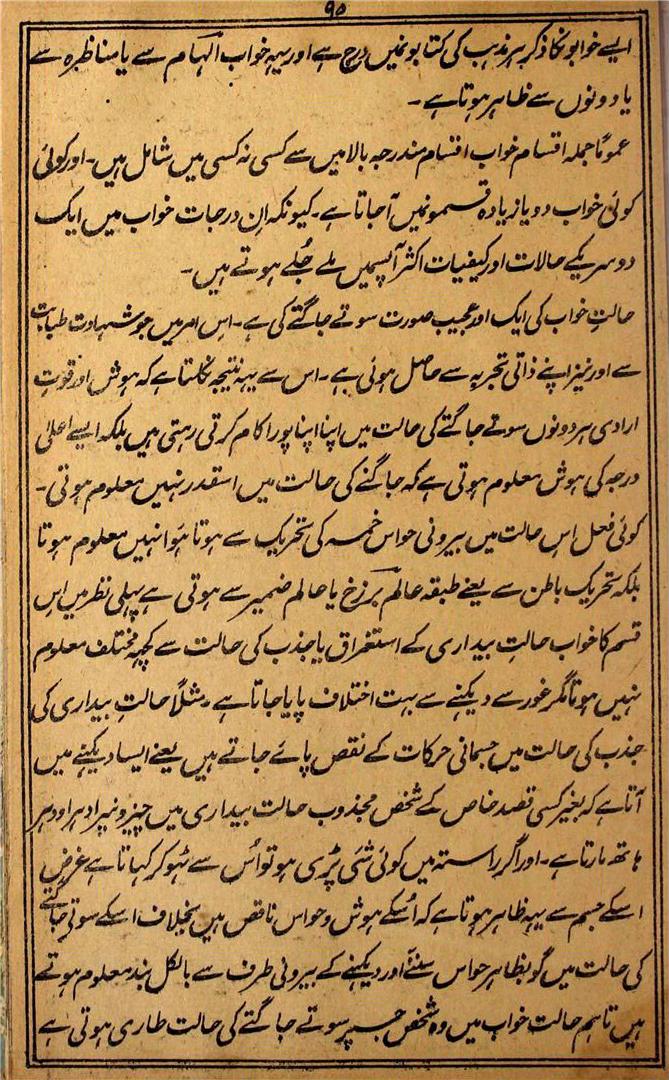 ۹۰
ایسے خوابونکا ذکر ہر مذہب کی کتابونمیں درج ہے اور یہہ خواب الہام سے یا مناظرہ سے
یا دونوں سے ظاہر ہوتا ہے ۔
عموماً جملہ اقسام خواب اقسام مندرجہ بالا میں سے کسی نہ کسی میں شامل ہیں ۔ اور کوئی
کوئی خواب دو یا زیادہ قسمونمیں آجاتا ہے ۔ کیونکہ ان درجات خواب میں ایک
دوسریکے حالات اور کیفیات اکثر آپسمیں ملے جُلے ہوتے ہیں ۔
حالتِ خواب کی ایک اور عجیب صورت سوتے جاگتے کی ہے ۔ اِس امر میں جو شہادت طبابت
سے اور نیز اپنے ذاتی تجربہ سے حاصل ہوئی ہے ۔ اس سے یہہ نتیجہ نکلتا ہے کہ ہوش اور قوتِ
ارادی ہر دونوں سوتے جاگتے کی حالت میں اپنا اپنا پورا کام کرتی رہتی ہیں بلکہ ایسے اعلیٰ
درجہ کی ہوش معلوم ہوتی ہے کہ جاگنے کی حالت میں اسقدر نہیں معلوم ہوتی ۔
کوئی فعل اِس حالت میں بیرونی حواس خمسہ کی تحریک سے ہوتا ہوا نہیں معلوم ہوتا
بلکہ تحریک باطن سے یعنے طبقہ عالم برزخ یا عالم ضمیر سے ہوتی ہے پہلی نظر میں اِس
قسم کا خواب حالتِ بیداری کے استغراق یا جذب کی حالت سے کچہہ مختلف معلوم
نہیں ہوتا مگر غور سے دیکہنے سے بہت اختلاف پایا جاتا ہے ۔ مثلاً حالتِ بیداری کی
جذب کی حالت میں جسمانی حرکات کے نقص پائے جاتے ہیں یعنے ایسا دیکہنے میں
آتا ہے کہ بغیر کسی قصد خاص کے شخص مجذوب حالت بیداری میں چیزونپر ادہر اودہر
ہاتھ مارتا ہے ۔ اور اگر راستہ میں کوئی شئی پڑی ہو تو اُس سے ٹہوکر کہاتا ہے غرض
اسکے جسم سے یہہ ظاہر ہوتا ہے کہ اُسکے ہوش و حواس ناقص ہیں بخلاف اسکے سوتے جاگتے
کی حالت میں گو بظاہر حواس سننے اور دیکہنے کے بیرونی طرف سے بالکل بند معلوم ہوتے
ہیں تاہم حالت خواب میں وہ شخص جسپر سوتے جاگتے کی حالت طاری ہوتی ہے